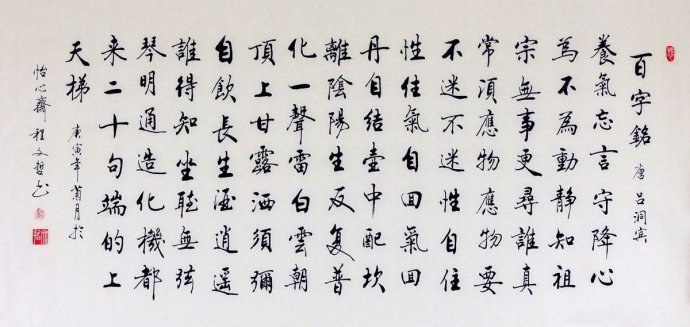 百字銘 唐 吕洞宾
養氣忘言守降心
為不為動靜知祖
宗無事更尋誰真
常須應物應物要
不迷不迷性自住
性住氣自回氣回
丹自結壺中配坎
離陰陽生反复普
化一聲雷白雲朝
頂上甘露洒須彌
自飲長生酒逍遥
誰得知坐聴無弦
琴明通造化機都
来二十句端的上
天梯 庚寅年菊月於
怡心齋程文哲书